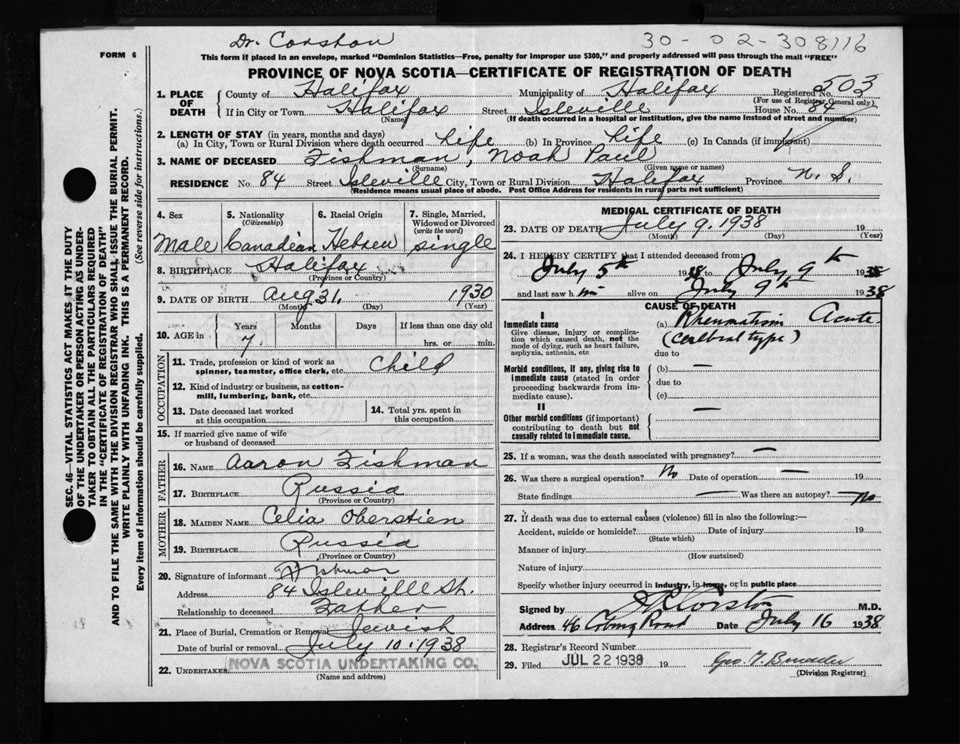 Dr. Corston 30-02-308116
FORM 6
This form if placed in an envelope, marked "Dominion Statistics—Free, penalty for improper use $300," and properly addressed will pass through the mail "FREE"
PROVINCE OF NOVA SCOTIA—CERTIFICATE OF REGISTRATION OF DEATH
1. PLACE OF DEATH
County of Halifax Municipality of Halifax Registered No. 503
(For use of Registrar General only)
If in City or Town Halifax Street Isleville House No. 84
(Name) (If death occurred in a hospital or institution, give the name instead of street and number)
2. LENGTH OF STAY (in years, months and days)
(a) In City, Town or Rural Division where death occurred Life (b) In Province Life (c) In Canada (if immigrant)
3. NAME OF DECEASED Fishman, Noah Paul
(Surname) (Given name or names)
RESIDENCE No. 84 Street Isleville City, Town or Rural Division Halifax Province N. S.
(Residence means usual place of abode. Post Office Address for residents in rural parts not sufficient)
4. Sex 5. Nationality (Citizenship) 6. Racial Origin 7. Single, Married, Widowed or Divorced (write the word)
Male Canadian Hebrew single
8. BIRTHPLACE Halifax
(Province or Country)
9. DATE OF BIRTH Aug 31, 1930
(Month) (Day) (Year)
10. AGE in Years Months Days If less than one day old
7 hrs. or min.
OCCUPATION
11. Trade, profession or kind of work as spinner, teamster, office clerk, etc. Child
12. Kind of industry or business, as cotton-mill, lumbering, bank, etc.
13. Date deceased last worked at this occupation 14. Total yrs. spent in this occupation
15. If married give name of wife or husband of deceased
FATHER
16. NAME Aaron Fishman
17. BIRTHPLACE Russia
(Province or Country)
MOTHER
18. MAIDEN NAME Celia Oberstien
19. BIRTHPLACE Russia
(Province or Country)
20. Signature of informant A Fishman
Address 84 Isleville St.
Relationship to deceased Father
21. Place of Burial, Cremation or Removal Jewish
Date of burial or removal July 10. 1938
22. UNDERTAKER NOVA SCOTIA UNDERTAKING CO.
(Name and address)
MEDICAL CERTIFICATE OF DEATH
23. DATE OF DEATH July 9. 1938 19
(Month) (Day) (Year)
24. I HEREBY CERTIFY that I attended deceased from:
July 5th 1938 to July 9th 1938
and last saw h im alive on July 9th 1938
CAUSE OF DEATH
I
Immediate cause (a) Rheumatism Acute
Give disease, injury or complication which caused death, not the mode of dying, such as heart failure, asphyxia, asthenia, etc
(Cerebral type)
due to
Morbid conditions, if any, giving rise to immediate cause (stated in order proceeding backwards from immediate cause).
(b) —
due to
(c)
II
Other morbid conditions (if important) contributing to death but not causally related to immediate cause. —
25. If a woman, was the death associated with pregnancy? —
26. Was there a surgical operation? No Date of operation — 19
State findings — Was there an autopsy? No
27. If death was due to external causes (violence) fill in also the following:—
Accident, suicide or homicide? Date of injury 19
(State which)
Manner of injury
(How sustained)
Nature of injury
Specify whether injury occurred in industry, in home, or in public place
Signed by A R Corston M.D.
Address 46 Coburg Road Date July 16 1938
28. Registrar's Record Number
29. Filed JUL 22 1938 19
(Division Registrar)
SEC. 46—VITAL STATISTICS ACT MAKES IT THE DUTY OF THE UNDERTAKER OR PERSON ACTING AS UNDERTAKER TO OBTAIN ALL THE PARTICULARS REQUIRED IN THE "CERTIFICATE OF REGISTRATION OF DEATH" AND TO FILE THE SAME WITH THE DIVISION REGISTRAR WHO SHALL ISSUE THE BURIAL PERMIT.
WRITE PLAINLY WITH UNFADING INK. THIS IS A PERMANENT RECORD.
Every item of information should be carefully supplied. (See reverse side for instructions.)